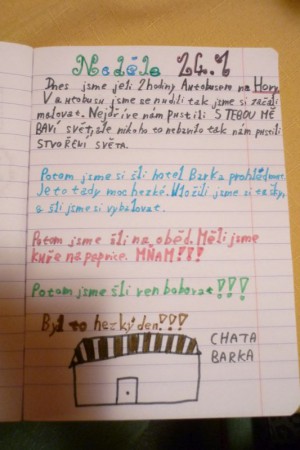 Neděle 24.1
Dnes jsme jeli 2 hodiny Autobusem na Hory.
V autobusu jsme se nudili tak jsme si začali
malovat. Nejdříve nám pustili S TEBOU MĚ
BAVÍ SVĚT, ale nikoho to nebavilo tak nám pustili
STVOŘENÍ SVĚTA.
Potom jsme si šli hotel Barka prohlédnout.
Je to tady moc hezké. Uložili jsme si tašky,
a šli jsme si vybalovat.
Potom jsme šli na oběd. Měli jsme
kuře na paprice. MŇAM!!!
Potom jsme šli ven bobovat!!!
Byl to hezký den!!!
CHATA
BARKA